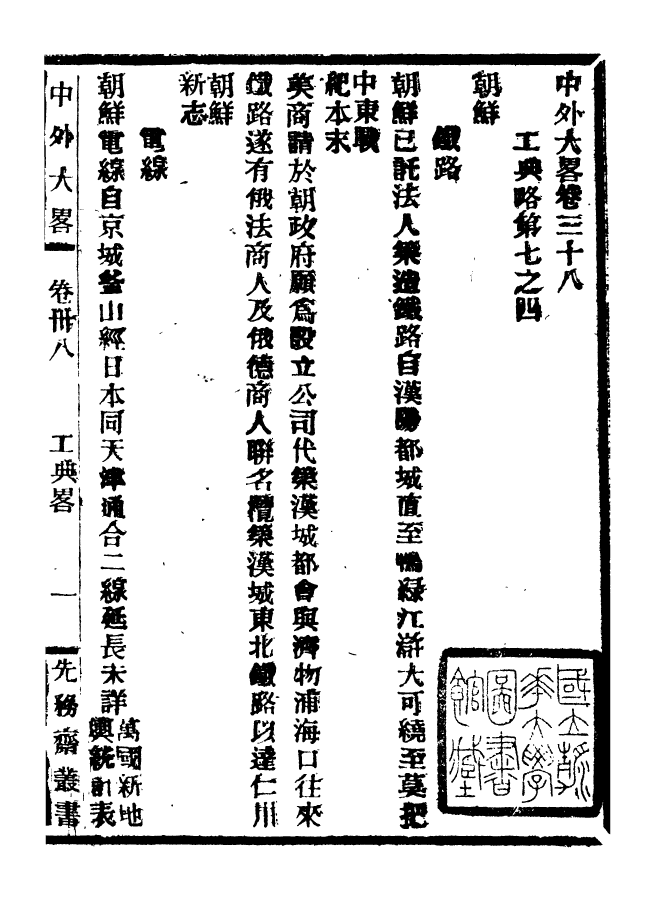 中外大畧卷三十八
工典略第七之四
朝鮮
鐵路
朝鮮已託法人築造鐵路自漢陽都城直至鴨緑江滸大可繞至莫把
中東戰
紀本末
英商請於朝政府願爲設立公司代築漢城都會與濟物浦海口往來
鐵路遂有俄法商人及俄德商人聯名攬築漢城東北鐵路以達仁川
朝鮮
新志
電線
朝鮮電線自京城釜山經日本同天津通合二線延長未詳
萬國新地
輿統計表
中外大畧 卷卅八 工典畧 一 先務齋叢書
國立
大學
圖書
館藏